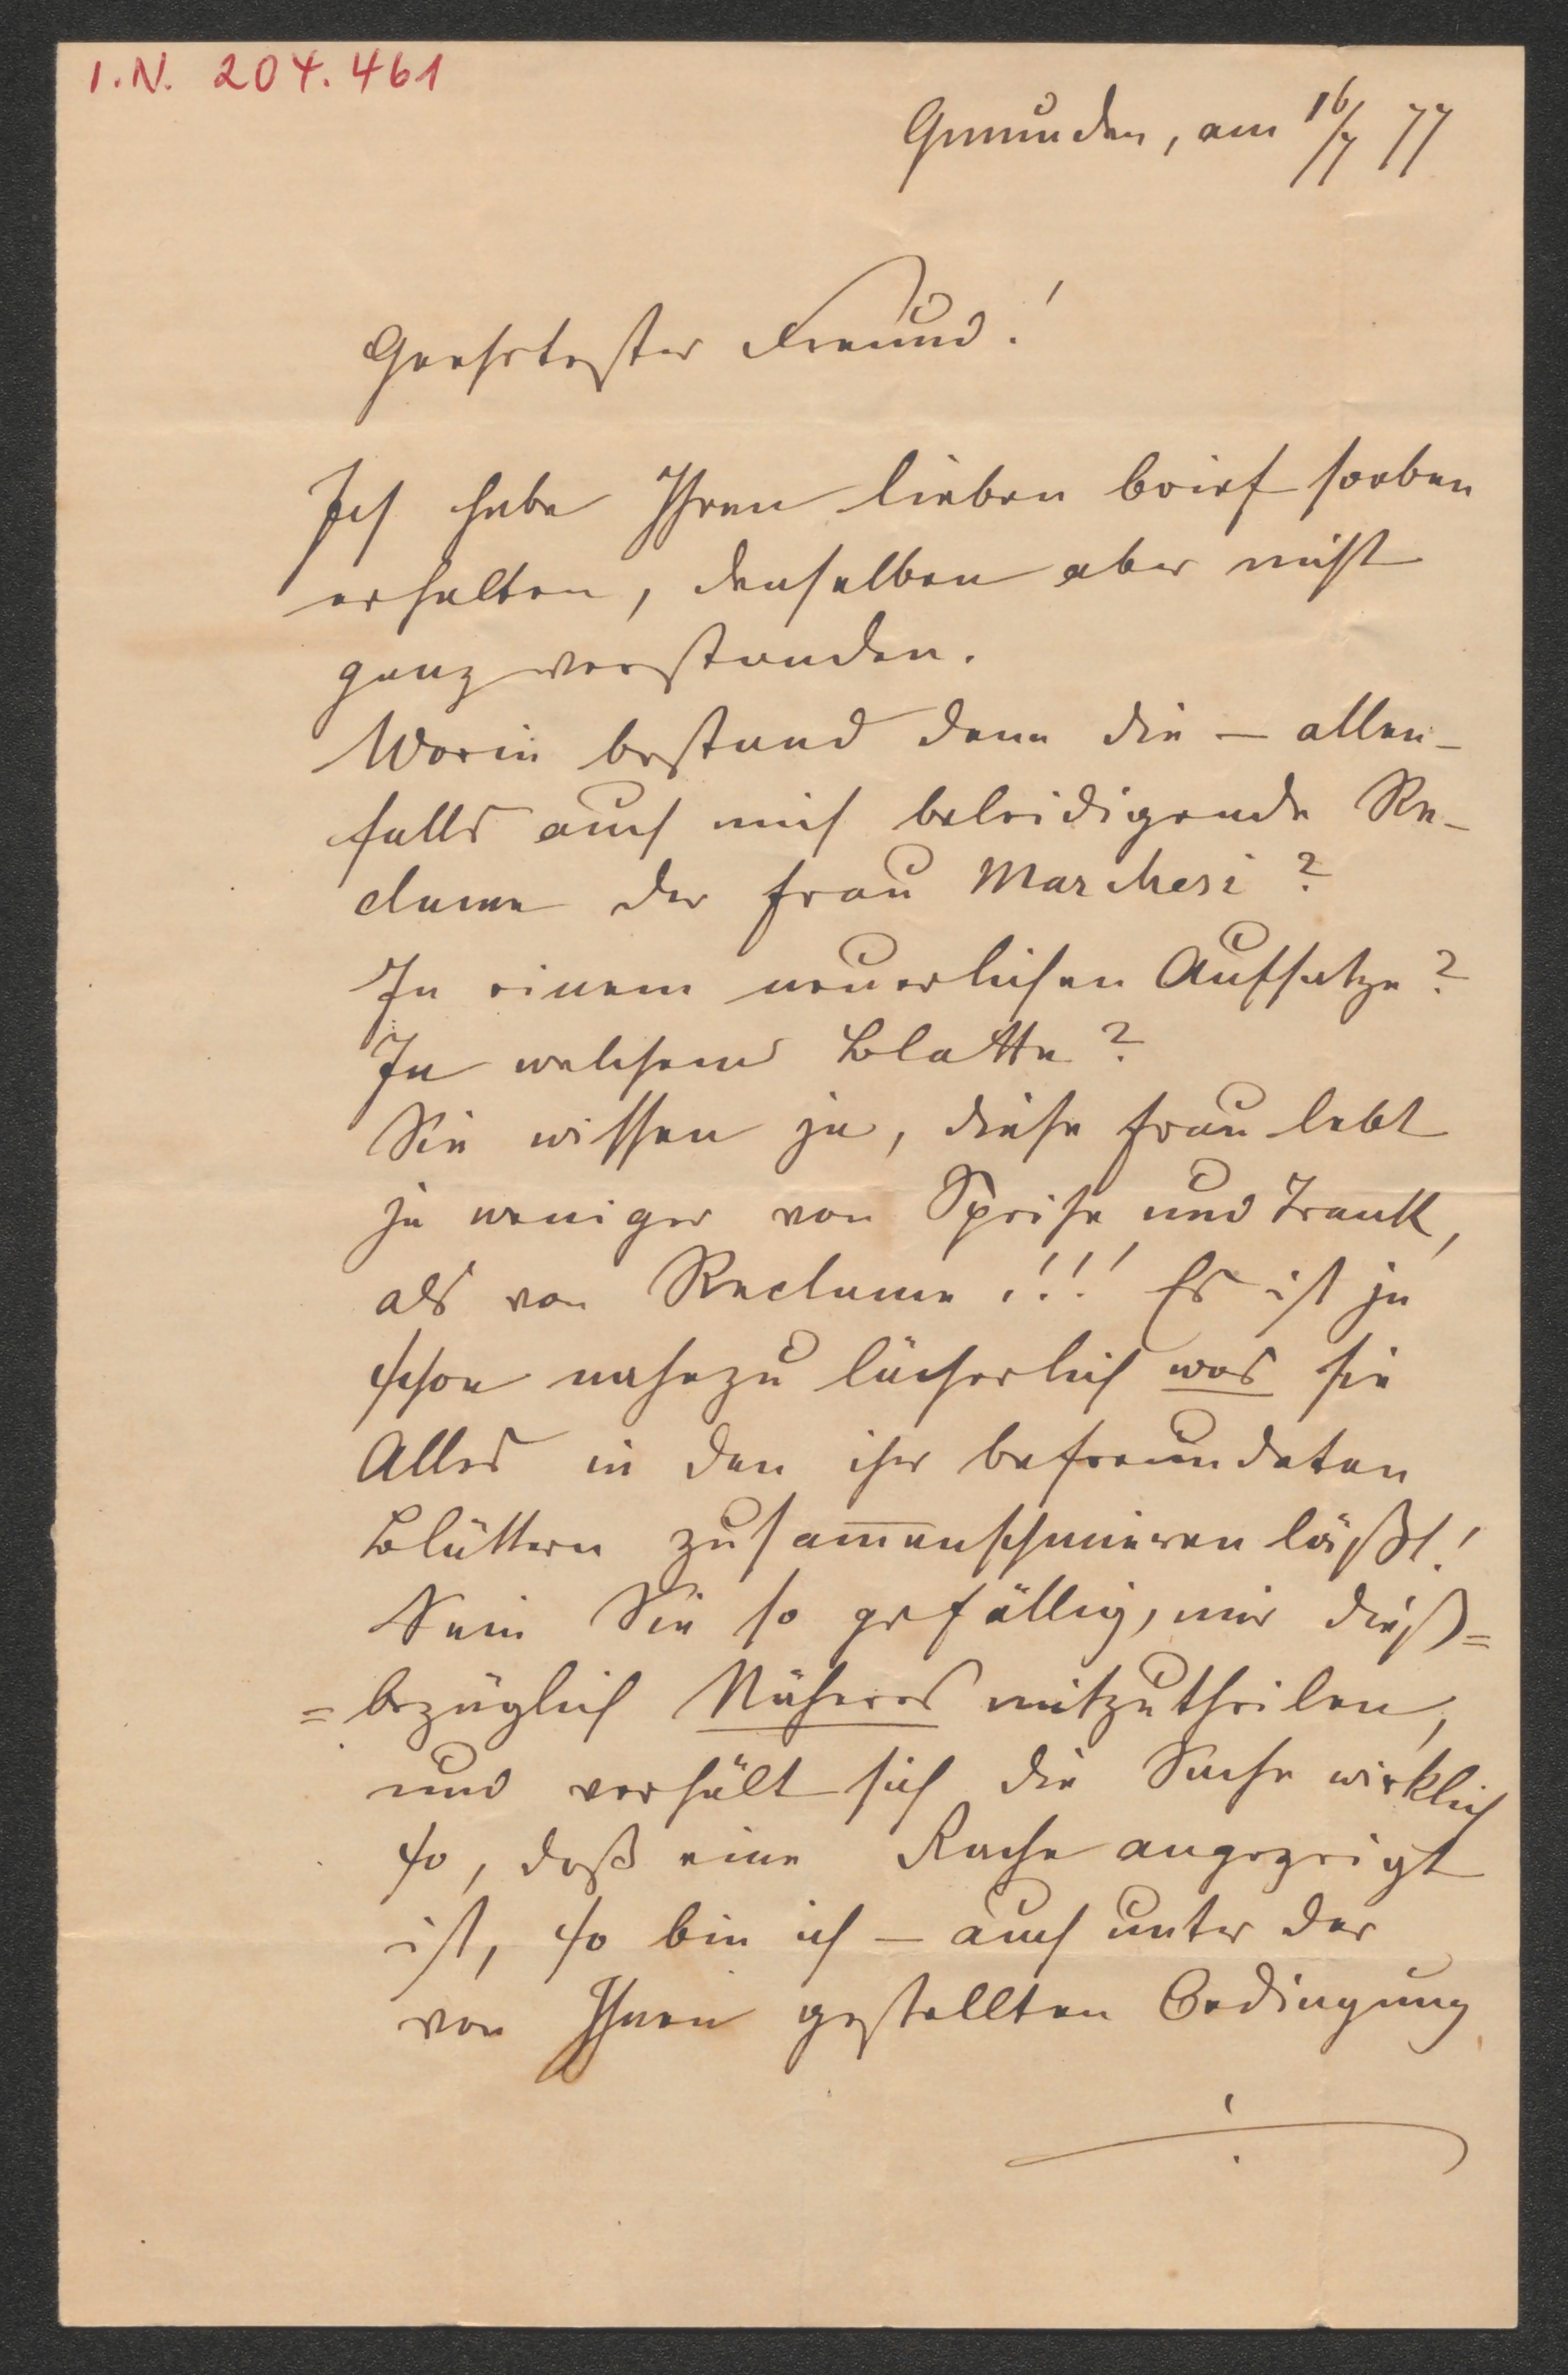 I.N. 204.461
Gmunden, am 16/7 77
Geehrtester Freund!
Ich habe Ihren lieben brief soeben
erhalten, denselben aber nicht
ganz verstanden.
Worin bestand denn die – allen-
falls auch mich beleidigende Re-
clame der Frau Marchesi?
In einem neuerlichen Aufsatze?
In welchem Blatte?
Sie wissen ja, diese Frau lebt
ja weniger von Speise und Trank,
als von Reclame!!! Es ist ja
schon nahezu lächerlich was sie
Alles in den ihr befreundeten
Blättern zusam̅enschmieren läßt!
Sein Sie so gefällig, mir dieß=
=bezüglich Näheres mitzutheilen,
und verhält sich die Sache wirklich
so, daß eine Rache angezeigt
ist, so bin ich – auch unter der
von Ihnen gestellten Bedingung